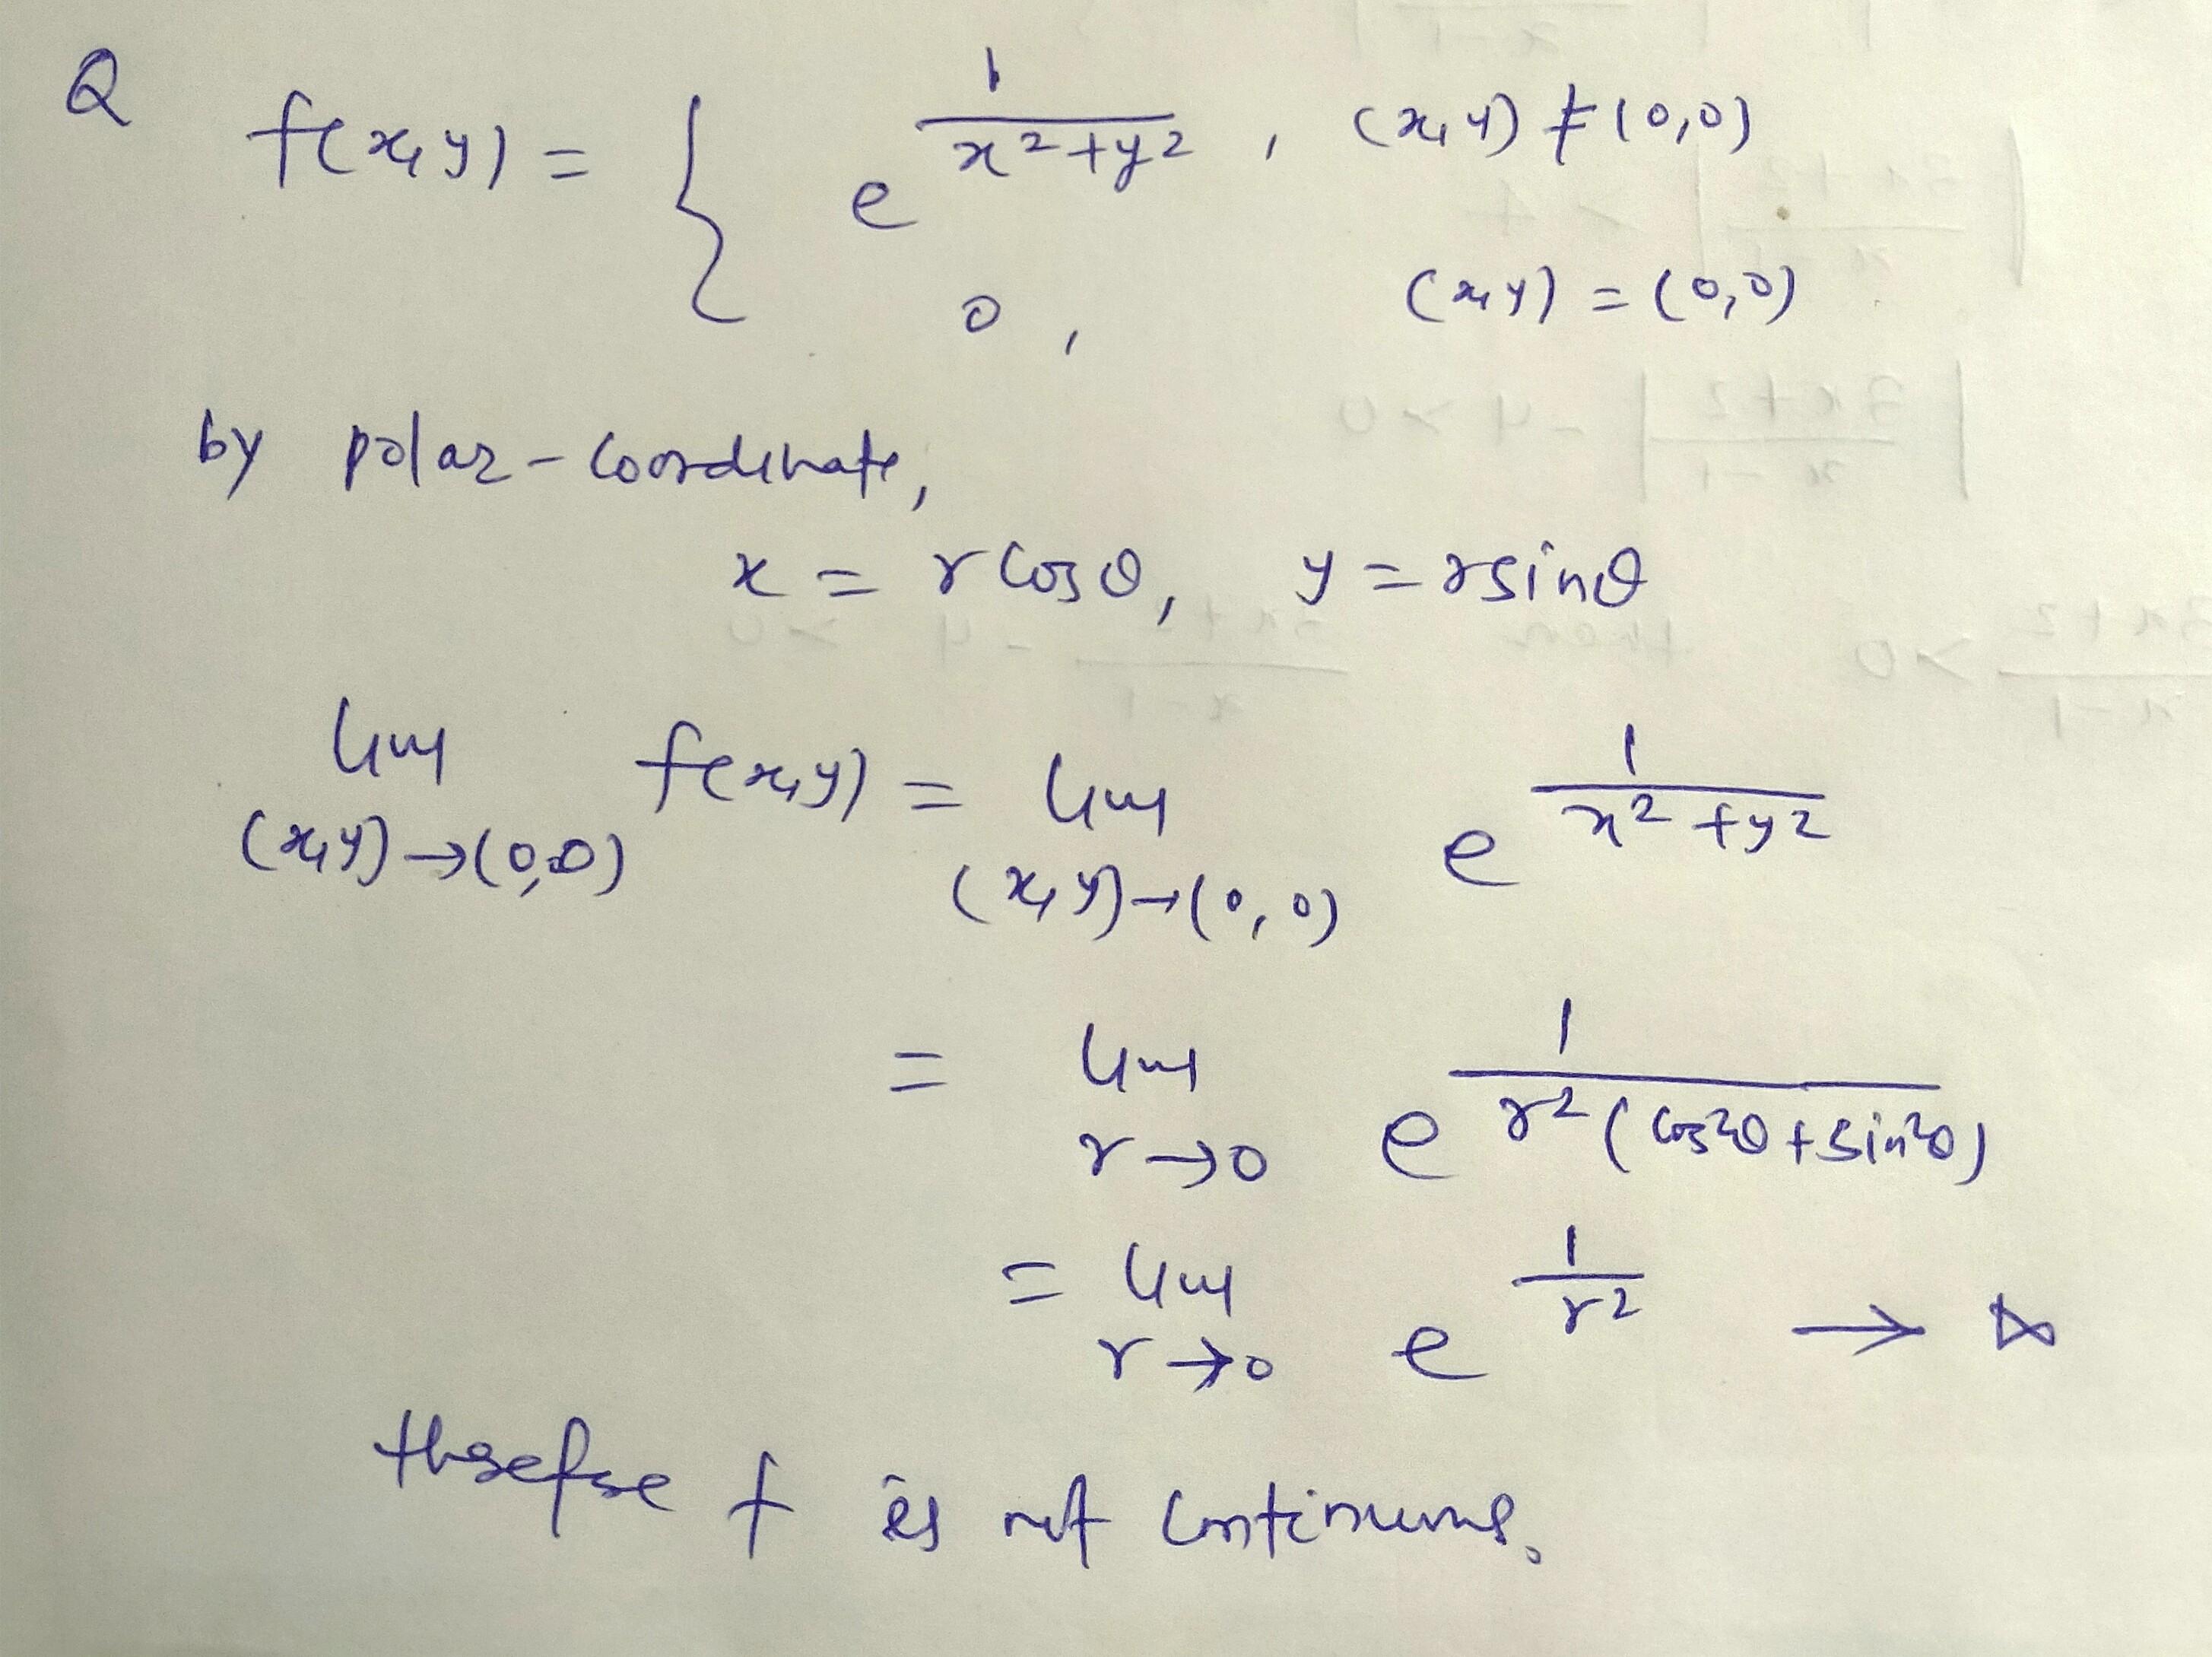 Q f(x,y) = { e^{\frac{1}{x^2+y^2}}, (x,y) ≠ (0,0)
0, (x,y) = (0,0)
by polar-coordinate,
x = r cosθ, y = r sinθ
lim_{(x,y)→(0,0)} f(x,y) = lim_{(x,y)→(0,0)} e^{\frac{1}{x^2+y^2}}
= lim_{r→0} e^{\frac{1}{r^2(cos^2θ+sin^2θ)}}
= lim_{r→0} e^{\frac{1}{r^2}} → ∞
therefore f is not continuous.